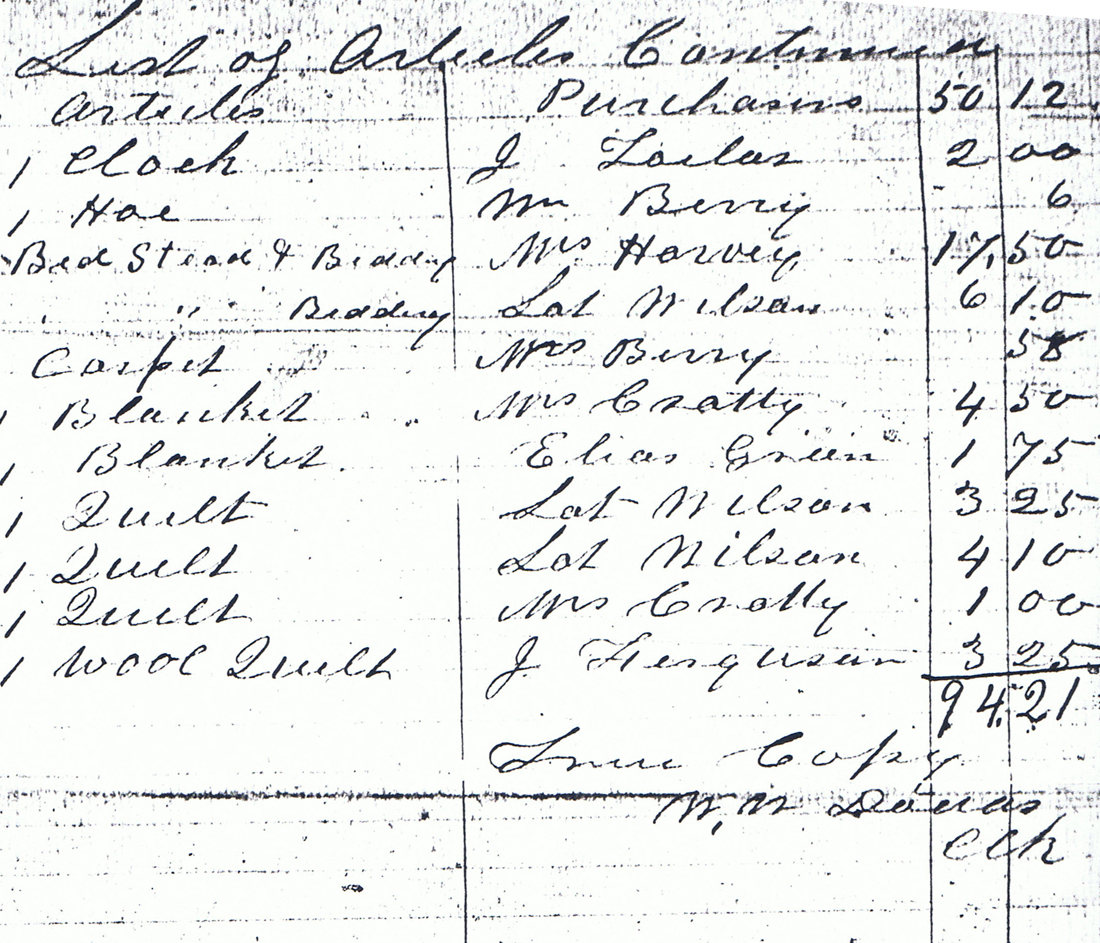 List of Articles Continued
Articles Purchasers 50 12
1 Clock J 2 00
1 Hoe Wm Berry 6
Bed Stead & Bedding Mrs Harvey 17.50
" " Bedding Lot Wilson 6 10
Carpet Mrs Berry 58
1 Blanket Mrs Cratty 4 50
1 Blanket Elias Green 1 75
1 Quilt Lot Wilson 3 25
1 Quilt Lot Wilson 4 10
1 Quilt Mrs Cratty 1 00
1 Wool Quilt J Ferguson 3 25
94.21
True Copy
W. W
Clk